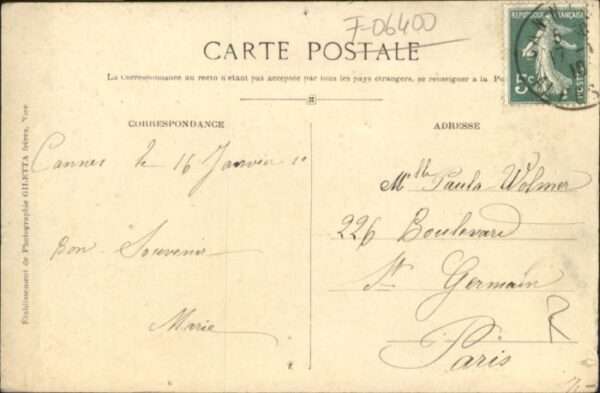 F-06400
RÉPUBLIQUE FRANÇAISE
5c
CARTE POSTALE
La Correspondance au recto n'étant pas acceptée par tous les pays étrangers, se renseigner à la
CORRESPONDANCE
ADRESSE
Cannes le 16 Janvier 10
Bon Souvenir
Marie
Mlle Paula Wolmer
226 Boulevard
St Germain
Paris
Etablissement de Photographie GILETTA frères, Nice